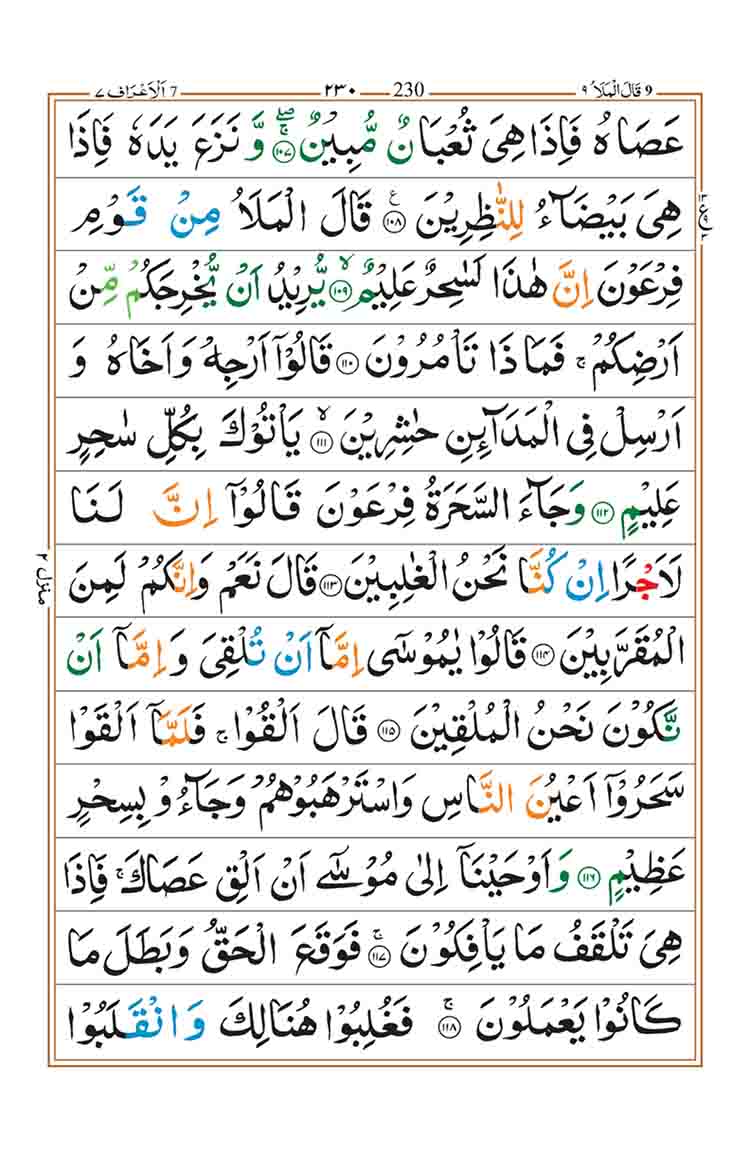 9 قَالَ الْمَلَاُ ٩ 230 ٢٣٠ 7 اَلْاَعْرَاف ٧
عَصَاهُ فَاِذَا هِىَ ثُعْبَانٌ مُّبِيْنٌ ۝١٠٧ وَّ نَزَعَ يَدَهٗ فَاِذَا
هِىَ بَيْضَآءُ لِلنّٰظِرِيْنَ ۝١٠٨ قَالَ الْمَلَاُ مِنْ قَوْمِ
فِرْعَوْنَ اِنَّ هٰذَا لَسٰحِرٌ عَلِيْمٌ ۝١٠٩ يُّرِيْدُ اَنْ يُّخْرِجَكُمْ مِّنْ
اَرْضِكُمْ ۚ فَمَاذَا تَاْمُرُوْنَ ۝١١٠ قَالُوْٓا اَرْجِهْ وَاَخَاهُ وَ
اَرْسِلْ فِى الْمَدَآئِنِ حٰشِرِيْنَ ۝١١١ يَاْتُوْكَ بِكُلِّ سٰحِرٍ
عَلِيْمٍ ۝١١٢ وَجَآءَ السَّحَرَةُ فِرْعَوْنَ قَالُوْٓا اِنَّ لَنَا
لَاَجْرًا اِنْ كُنَّا نَحْنُ الْغٰلِبِيْنَ ۝١١٣ قَالَ نَعَمْ وَاِنَّكُمْ لَمِنَ
الْمُقَرَّبِيْنَ ۝١١٤ قَالُوْا يٰمُوْسٰٓى اِمَّآ اَنْ تُلْقِىَ وَاِمَّآ اَنْ
نَّكُوْنَ نَحْنُ الْمُلْقِيْنَ ۝١١٥ قَالَ اَلْقُوْا ۚ فَلَمَّآ اَلْقَوْا
سَحَرُوْٓا اَعْيُنَ النَّاسِ وَاسْتَرْهَبُوْهُمْ وَجَآءُوْ بِسِحْرٍ
عَظِيْمٍ ۝١١٦ وَاَوْحَيْنَآ اِلٰى مُوْسٰٓى اَنْ اَلْقِ عَصَاكَ ۚ فَاِذَا
هِىَ تَلْقَفُ مَا يَاْفِكُوْنَ ۝١١٧ فَوَقَعَ الْحَقُّ وَبَطَلَ مَا
كَانُوْا يَعْمَلُوْنَ ۝١١٨ فَغُلِبُوْا هُنَالِكَ وَانْقَلَبُوْا
منزل ٢